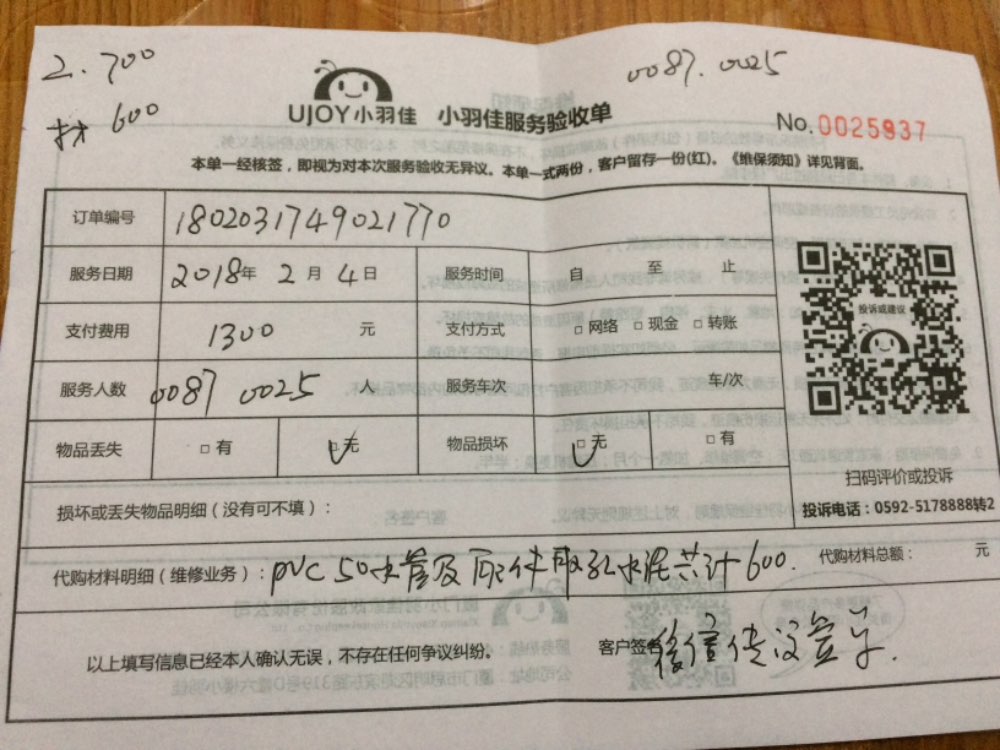 2.700
材 600
0087.0025
UJOY小羽佳 小羽佳服务验收单
No.0025937
本单一经核签，即视为对本次服务验收无异议。本单一式两份，客户留存一份(红)。《维保须知》详见背面。
订单编号 1802031749021770
服务日期 2018年 2月 4日 服务时间 自 至 止
支付费用 1300 元 支付方式 □网络 □现金 □转账
服务人数 0087 0025 人 服务车次 车/次
物品丢失 □有 □无 物品损坏 □无 □有
投诉或建议
扫码评价或投诉
投诉电话：0592-5178888转2
损坏或丢失物品明细（没有可不填）：
代购材料明细（维修业务）：PVC 50水管及配件取孔水泥共计600. 代购材料总额： 元
以上填写信息已经本人确认无误，不存在任何争议纠纷。
客户签名 微信传没签字.